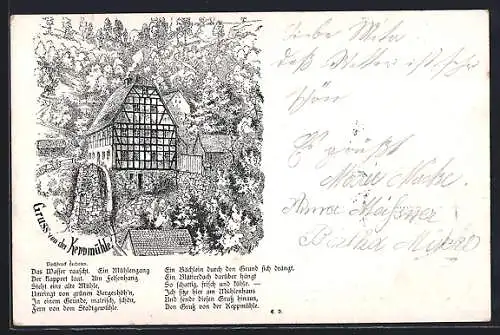 Liebe Mila
daß Wetter ist sehr
schön
Es grüßt
Marie
Anna Meißner
Gruss von der Keppmühle!
Nachdruck verboten.
Das Wasser rauscht. Ein Mühlengang
Der klappert laut. Am Felsenhang
Steht eine alte Mühle,
Umringt von grünen Bergeshöh'n,
In einem Grunde, malerisch, schön,
Fern von dem Stadtgewühle.
Ein Bächlein durch den Grund sich drängt.
Ein Blätterdach darüber hängt
So schattig, frisch und kühle. —
Ich sitze hier am Mühlenhaus
Und sende diesen Gruß hinaus,
Den Gruß von der Keppmühle.